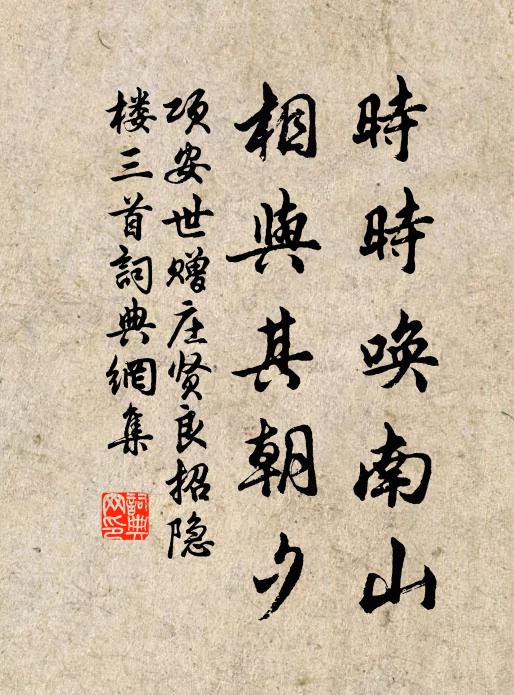 時時唤南山
相與其朝夕
项安世赠庄贤良招隐
楼三首詞典網集
詞典
网印